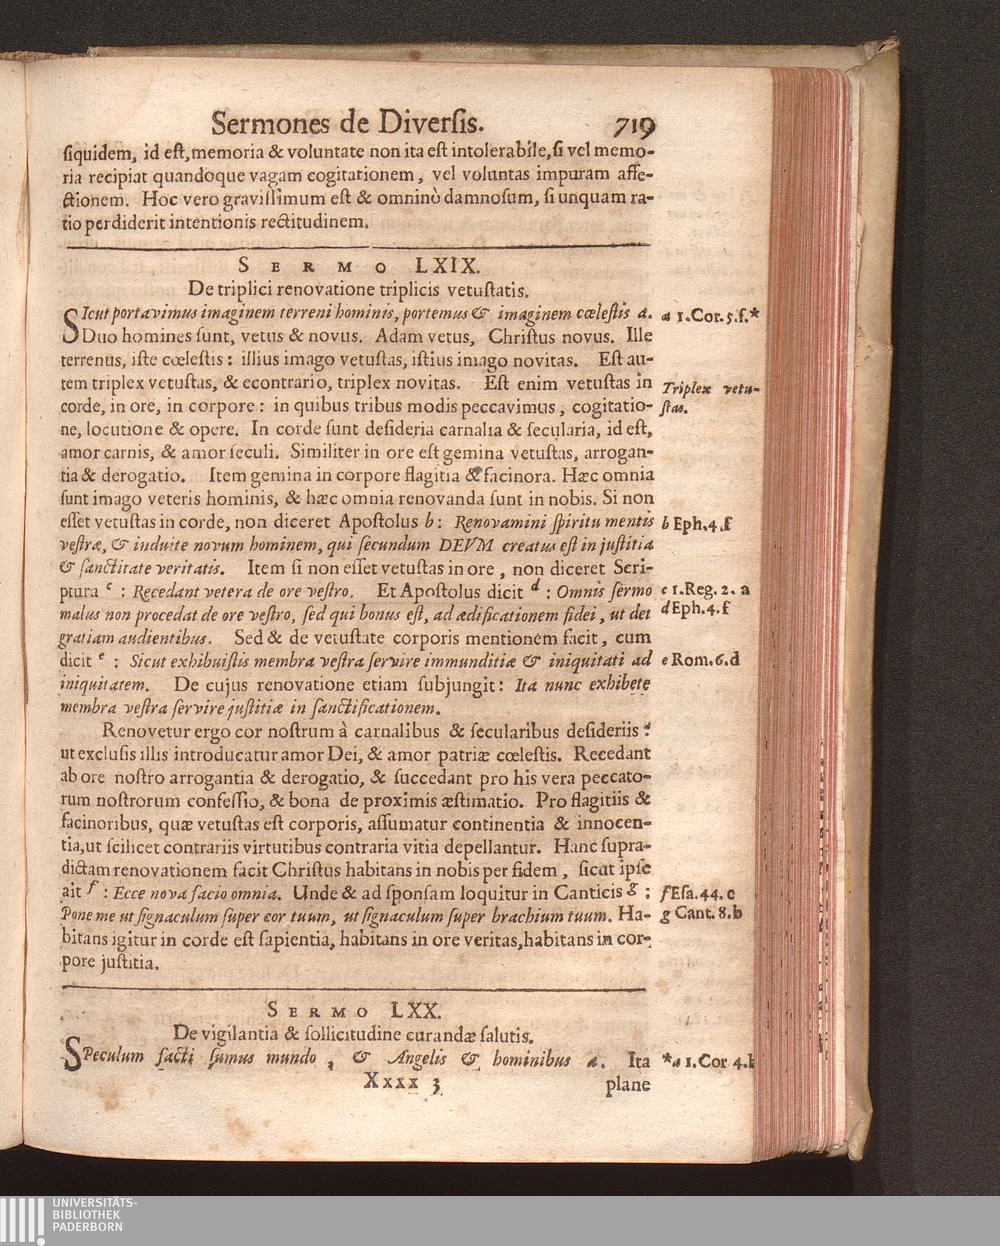 Sermones de Diversis. 719
siquidem, id est, memoria & voluntate non ita est intolerabile, si vel memo-
ria recipiat quandoque vagam cogitationem, vel voluntas impuram affe-
ctionem. Hoc vero gravissimum est & omninò damnosum, si unquam ra-
tio perdiderit intentionis rectitudinem.
SERMO LXIX.
De triplici renovatione triplicis vetustatis.
SIcut portavimus imaginem terreni hominis, portemus & imaginem cœlestis a.
a 1. Cor. 5. f.*
Duo homines sunt, vetus & novus. Adam vetus, Christus novus. Ille
terrenus, iste cœlestis: illius imago vetustas, istius imago novitas. Est au-
tem triplex vetustas, & econtrario, triplex novitas. Est enim vetustas in
Triplex vetu-
stas.
corde, in ore, in corpore: in quibus tribus modis peccavimus, cogitatio-
ne, locutione & opere. In corde sunt desideria carnalia & secularia, id est,
amor carnis, & amor seculi. Similiter in ore est gemina vetustas, arrogan-
tia & derogatio. Item gemina in corpore flagitia & facinora. Hæc omnia
sunt imago veteris hominis, & hæc omnia renovanda sunt in nobis. Si non
esset vetustas in corde, non diceret Apostolus b: Renovamini spiritu mentis
b Eph. 4. f
vestræ, & induite novum hominem, qui secundum DEVM creatus est in justitia
& sanctitate veritatis. Item si non esset vetustas in ore, non diceret Scri-
ptura c: Recedant vetera de ore vestro. Et Apostolus dicit d: Omnis sermo
c 1. Reg. 2. a
malus non procedat de ore vestro, sed qui bonus est, ad ædificationem fidei, ut det
d Eph. 4. f
gratiam audientibus. Sed & de vetustate corporis mentionem facit, cum
dicit e: Sicut exhibuistis membra vestra servire immunditiæ & iniquitati ad
e Rom. 6. d
iniquitatem. De cujus renovatione etiam subjungit: Ita nunc exhibete
membra vestra servire justitiæ in sanctificationem.
Renovetur ergo cor nostrum à carnalibus & secularibus desideriis:
ut exclusis illis introducatur amor Dei, & amor patriæ cœlestis. Recedant
ab ore nostro arrogantia & derogatio, & succedant pro his vera peccato-
rum nostrorum confessio, & bona de proximis æstimatio. Pro flagitiis &
facinoribus, quæ vetustas est corporis, assumatur continentia & innocen-
tia, ut scilicet contrariis virtutibus contraria vitia depellantur. Hanc supra-
dictam renovationem facit Christus habitans in nobis per fidem, sicut ipse
ait f: Ecce nova facio omnia. Unde & ad sponsam loquitur in Canticis g:
f Esa. 44. c
Pone me ut signaculum super cor tuum, ut signaculum super brachium tuum. Ha-
g Cant. 8. b
bitans igitur in corde est sapientia, habitans in ore veritas, habitans in cor-
pore justitia.
SERMO LXX.
De vigilantia & sollicitudine curandæ salutis.
SPeculum facti sumus mundo, & Angelis & hominibus a. Ita
*a 1. Cor 4. b
Xxxx 3 plane
UNIVERSITÄTS-
BIBLIOTHEK
PADERBORN